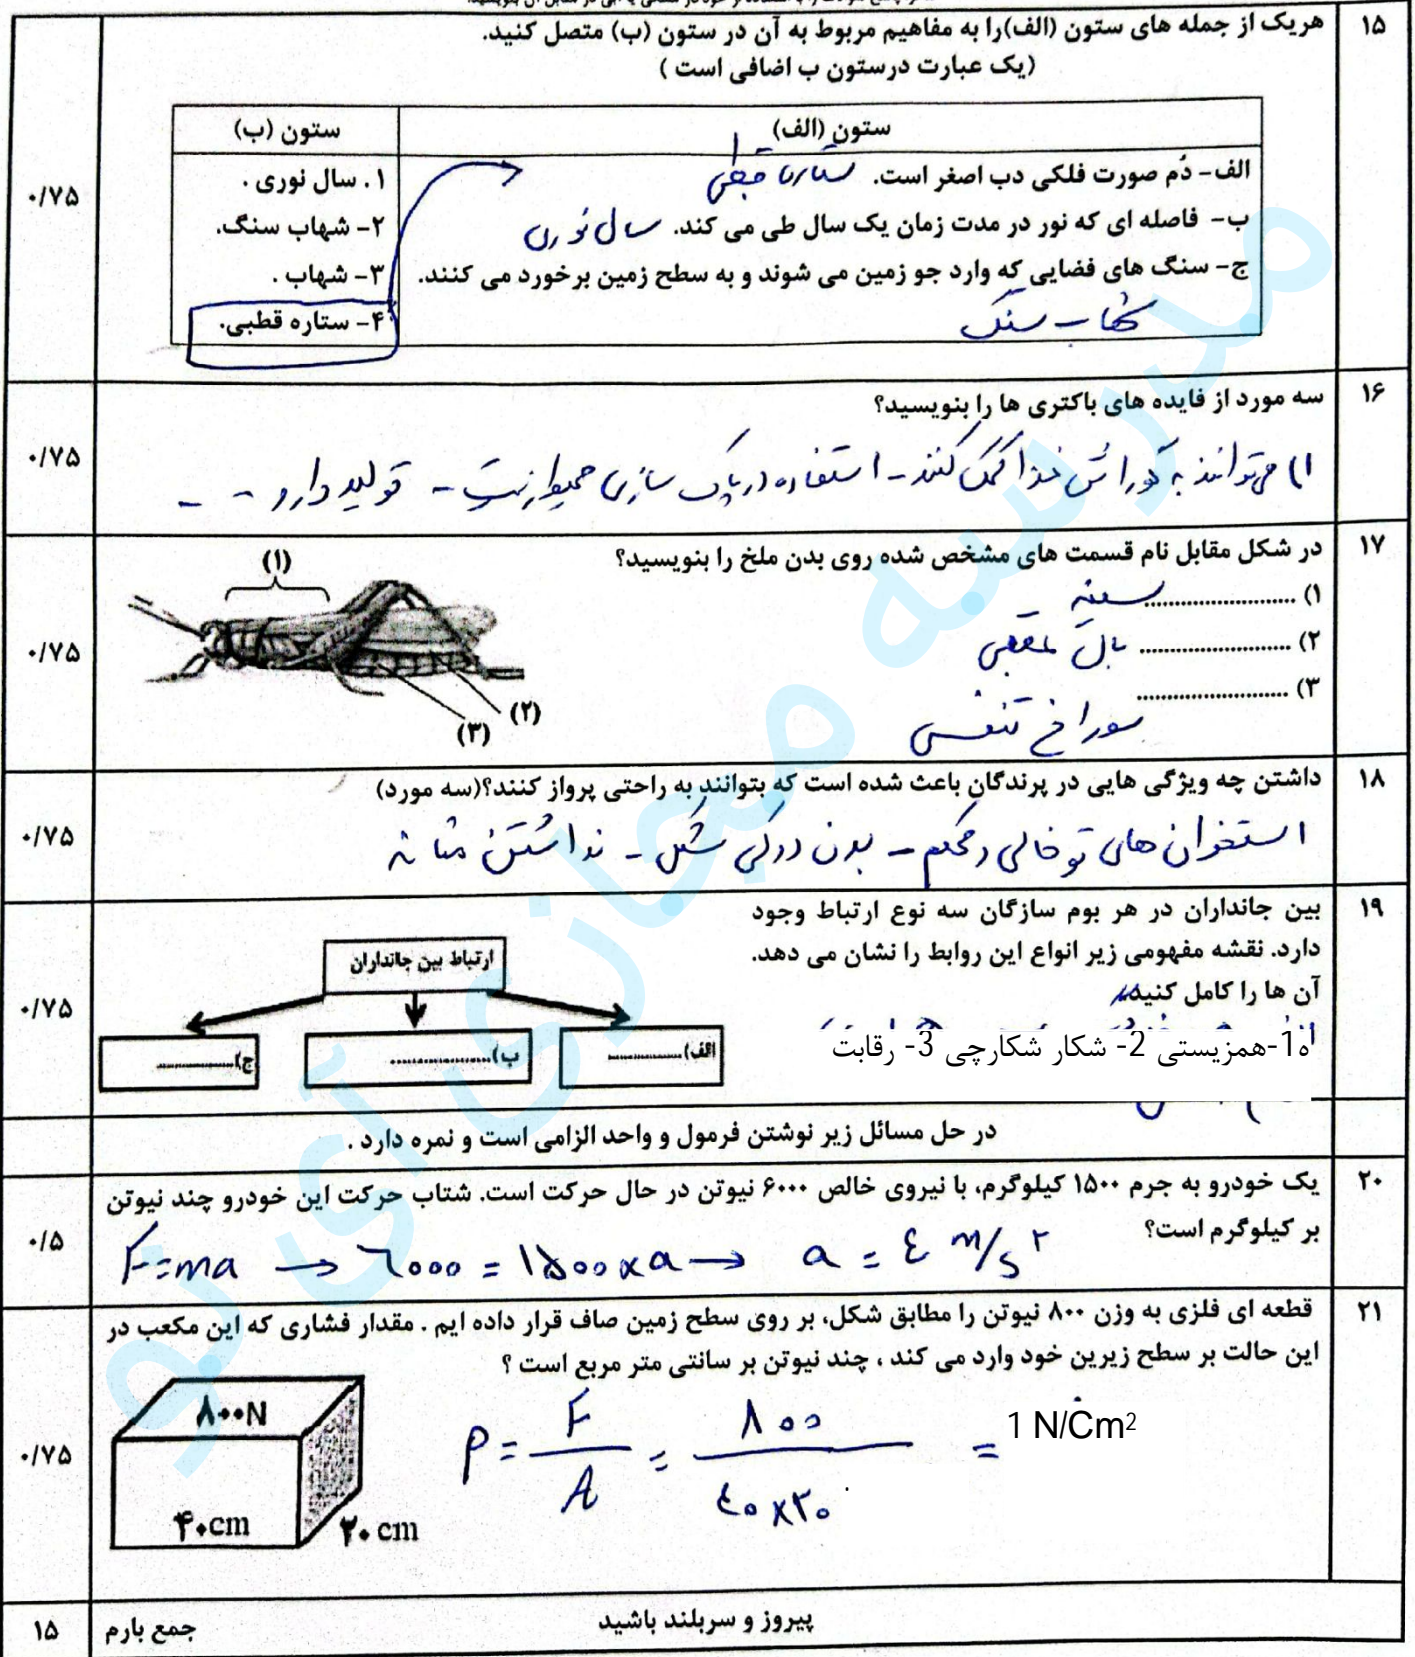 ۱۵
هریک از جمله های ستون (الف)را به مفاهیم مربوط به آن در ستون (ب) متصل کنید.
(یک عبارت درستون ب اضافی است )
۰/۷۵
ستون (الف)
ستون (ب)
الف- دُم صورت فلکی دب اصغر است. ستاره قطبی
ب- فاصله ای که نور در مدت زمان یک سال طی می کند. سال نوری
ج- سنگ های فضایی که وارد جو زمین می شوند و به سطح زمین برخورد می کنند.
شهاب سنگ
۱. سال نوری .
۲- شهاب سنگ.
۳- شهاب .
۴- ستاره قطبی.
۱۶
سه مورد از فایده های باکتری ها را بنویسید؟
۰/۷۵
۱) می‌توانند به گوارش غذا کمک کنند - استفاده در پاک سازی محیط زیست - تولید دارو - -
۱۷
در شکل مقابل نام قسمت های مشخص شده روی بدن ملخ را بنویسید؟
۰/۷۵
۱) .......................... سینه
۲) .......................... بال عقبی
۳) ..........................
سوراخ تنفسی
(۱)
(۲)
(۳)
۱۸
داشتن چه ویژگی هایی در پرندگان باعث شده است که بتوانند به راحتی پرواز کنند؟(سه مورد)
۰/۷۵
استخوان های توخالی و محکم - بدن دوکی شکل - نداشتن مثانه
۱۹
بین جانداران در هر بوم سازگان سه نوع ارتباط وجود
دارد. نقشه مفهومی زیر انواع این روابط را نشان می دهد.
آن ها را کامل کنید.
۰/۷۵
1-همزیستی 2- شکار شکارچی 3- رقابت
ارتباط بین جانداران
الف)..................
ب)......................
ج)..................
در حل مسائل زیر نوشتن فرمول و واحد الزامی است و نمره دارد .
۲۰
یک خودرو به جرم ۱۵۰۰ کیلوگرم، با نیروی خالص ۶۰۰۰ نیوتن در حال حرکت است. شتاب حرکت این خودرو چند نیوتن
بر کیلوگرم است؟
۰/۵
F=ma → ٦٠٠٠ = ١٥٠٠×a → a = ٤ m/s۲
۲۱
قطعه ای فلزی به وزن ۸۰۰ نیوتن را مطابق شکل، بر روی سطح زمین صاف قرار داده ایم . مقدار فشاری که این مکعب در
این حالت بر سطح زیرین خود وارد می کند ، چند نیوتن بر سانتی متر مربع است ؟
۰/۷۵
۸۰۰N
۴۰cm
۲۰ cm
P = F/A = ٨٠٠/٤٠×٢٠ = 1 N/Cm²
پیروز و سربلند باشید
جمع بارم
۱۵
مدرسه مجازی آی نو